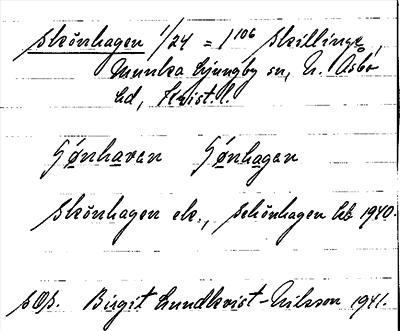 Skönhagen 1/24 = 1¹⁰⁶ Skillinge,
Munka Ljungby sn, N. Åsbo
hd, Krist. l.
Sjø̄nhaven Sjø̄nhagen
Skönhagen ek., Schönhagen kb 1940.
sOs. Birgit Lundkvist-Nilsson 1941.